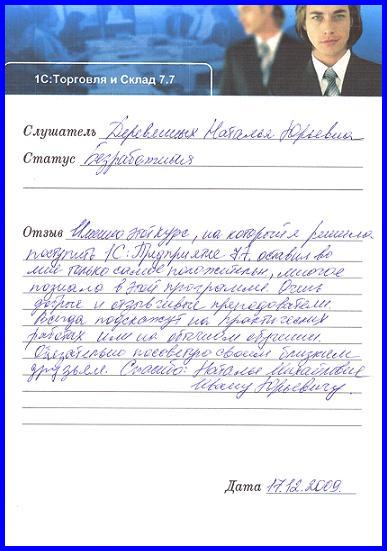 1С:Торговля и Склад 7.7
Слушатель Деревянных Наталья Юрьевна
Статус Безработная
Отзыв Именно этот курс, на который я решила
поступить 1С: Предприятие 7.7. оставил во
мне только самое положительн, многое
познала в этой программе. Очень
добрые и отзывчивые преподователи.
Всегда подскажут на практических
работах или на обычном обучении.
Обязательно посоветую своим близким
друзьям. Спасибо: Наталье Михайловне
Ивану Юрьевичу.
Дата 17.12.2009.